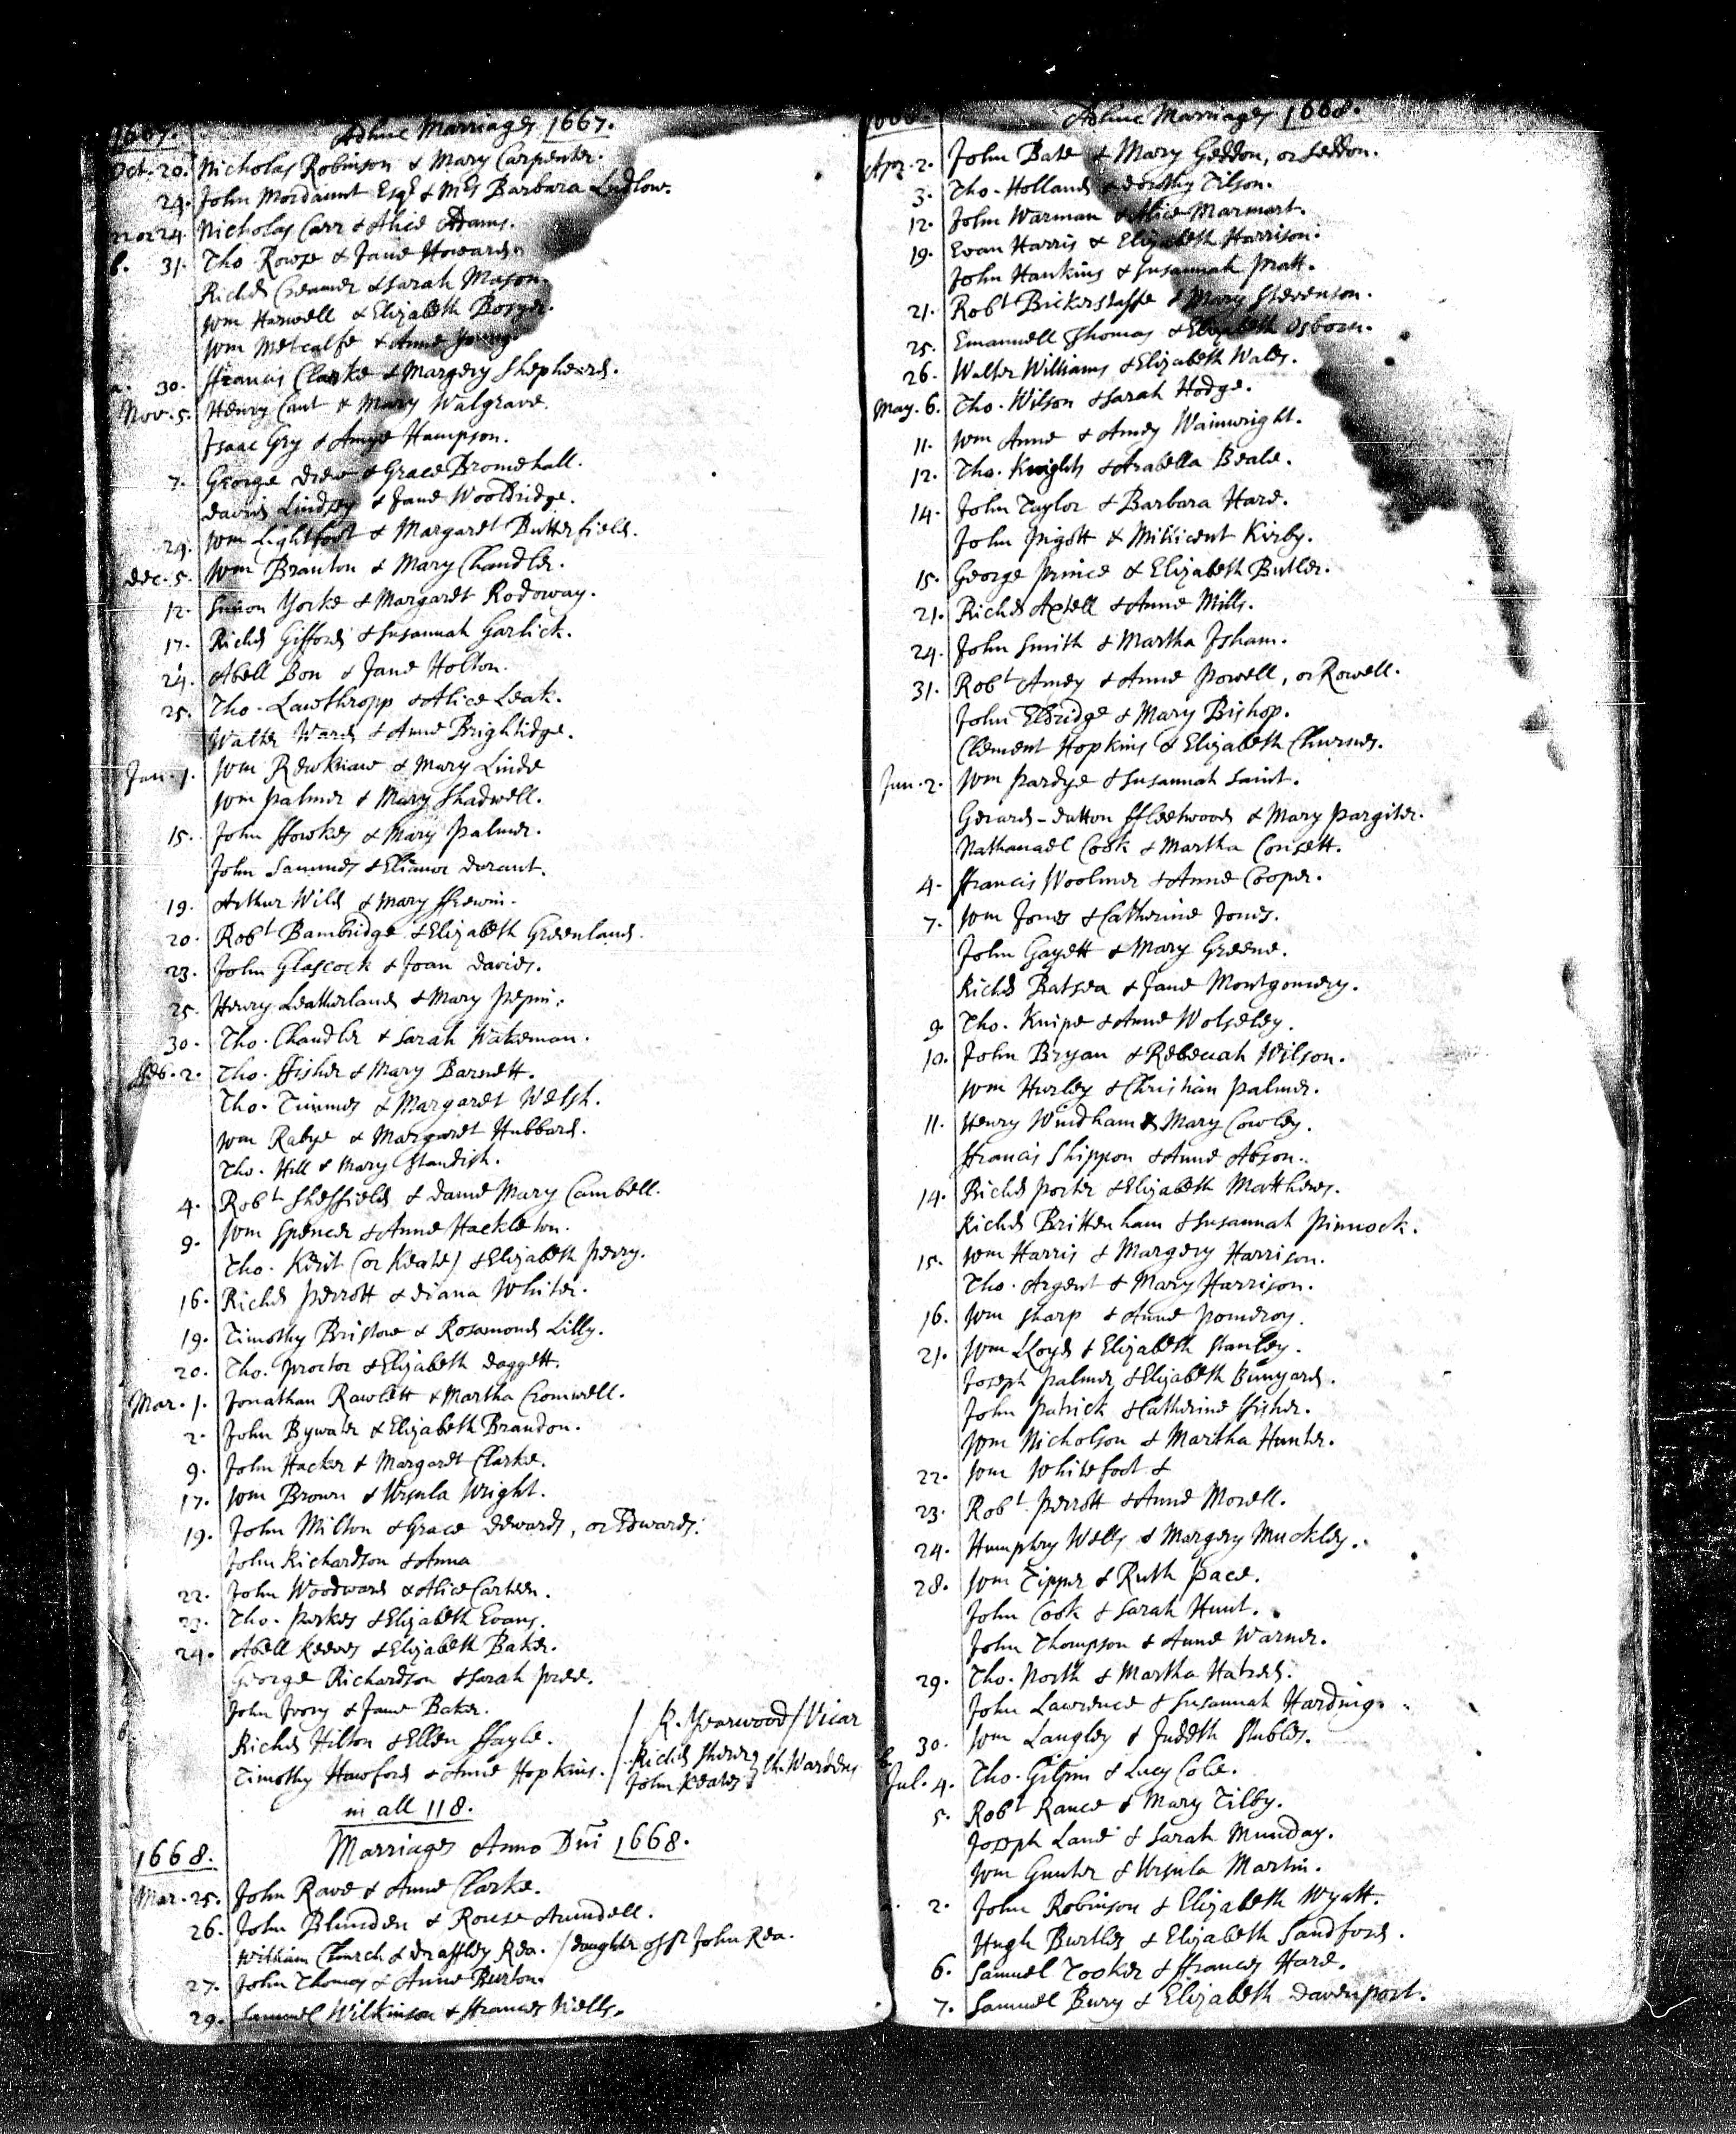 1667. Adhuc Marriages 1667.
Oct. 20. Nicholas Robinson & Mary Carpenter.
24. John Mordaunt Esqr & Mrs Barbara Ludlow.
22 or 24. Nicholas Carr & Alice Adams.
b. 31. Tho. Rowse & Jane Howard.
Richd Creamer & Sarah Mason.
Wm Harwell & Elizabeth
Wm Metcalfe & Anne
a. 30. Francis Clarke & Margery Shepheard.
Nov. 5. Henry Cant & Mary Walgrave.
Isaac Gry & Amye Hampson.
7. George Drew & Grace Bromehall.
David Lindsey & Jane Wooldridge.
24. Wm Lightfoot & Margaret Butterfield.
Dec. 5. Wm Branton & Mary Chandler.
12. Simon Yorke & Margaret Rodoway.
17. Richd Gifford & Susannah Garlick.
24. Abell Bon & Jane Holton.
25. Tho. Lawthropp & Alice Leak.
Walter Ward & Anne Brightidge.
Jan. 1. Wm & Mary Linde
Wm Palmer & Mary Shadwell.
15. John ffowkes & Mary Palmer.
John Sammes & Elianor Durant.
19. Arthur Wild & Mary ffrewin.
20. Robt Bambridge & Elizabeth Greenland.
23. John Glascock & Joan Davies.
25. Henry Leatherland & Mary Pepin.
30. Tho. Chandler & Sarah Wakeman.
ffeb. 2. Tho. ffisher & Mary Barnett.
Tho. Timmes & Margaret Welsh.
Wm Rabye & Margaret Hubbard.
Tho. Hill & Mary Standish.
4. Robt Sheffield & Dame Mary Cambell.
9. Wm Spencer & Anne Hackleton.
Tho. Keit (or Keate) & Elizabeth Perry.
16. Richd Perrott & Diana Whiter.
19. Timothy Bristow & Rosamond Lilly.
20. Tho. Proctor & Elizabeth Daggett.
Mar. 1. Jonathan Rawlett & Martha Cromwell.
2. John Bywater & Elizabeth Brandon.
9. John Hacker & Margaret Clarke.
17. Wm Brown & Ursula Wright.
19. John Milton & Grace Dewards, or Edwards.
John Richardson & Anna
22. John Woodward & Alice Carteen.
23. Tho. Perkes & Elizabeth Evans.
24. Abell Reeves & Elizabeth Baker.
George Richardson & Sarah Pree.
John Ivory & Jane Baker.
Richd Hilton & Ellen ffayle. / R. Yearwood / Vicar
Timothy Hawford & Anne Hopkins. / Richd Shere John Keate } Ch. Wardens
in all 118.
1668. Marriages Anno Dni 1668.
Mar. 25. John Rave & Anne Clarke.
26. John Blunden & Rouse Arundell.
William Church & Draffley Rea. / daughter of Sr John Rea.
27. John Thomas & Anne Burton.
29. Samuel Wilkinson & ffrances Wells.
1668. Adhuc Marriages 1668.
Apr. 2. John Bate & Mary Geddon, or Seddon.
3. Tho. Holland & Dorothy Tilson.
12. John Warman & Alice Marmart.
19. Evan Harris & Elizabeth Harrison.
John Hankins & Susannah Pratt.
21. Robt Bickerstaffe & Mary Stevenson.
25. Emanuell Thomas & Elizabeth Osborn.
26. Walter Williams & Elizabeth Wales.
May. 6. Tho. Wilson & Sarah Hodge.
11. Wm Anne & Amey Wainwright.
12. Tho. Knights & Arabella Beale.
14. John Taylor & Barbara Hare.
John Pigott & Millicent Kirby.
15. George Prince & Elizabeth Butler.
21. Richd Axtell & Anne Mills.
24. John Smith & Martha Isham.
31. Robt Amey & Anne Powell, or Rowell.
John Elbridge & Mary Bishop.
Clement Hopkins & Elizabeth Churnes.
Jun. 2. Wm Pardye & Susannah Saint.
Gerard-Dutton ffleetwood & Mary Pargiter.
Nathanael Cook & Martha Consett.
4. ffrancis Woolmer & Anne Cooper.
7. Wm Jones & Catherine Jones.
John Gayett & Mary Greene.
Richd Batsea & Jane Montgomery.
9. Tho. Knipe & Anne Wolseley.
10. John Bryan & Rebeccah Wilson.
Wm Hurley & Christian Palmer.
11. Henry Windham & Mary Cowley.
ffrancis Shippon & Anne Abson.
14. Richd Porter & Elizabeth Matthews.
Richd Brittenham & Susannah Pinnock.
15. Wm Harris & Margery Harrison.
Tho. Argent & Mary Harrison.
16. Wm Sharp & Anne Pomeroy.
21. Wm Lloyd & Elizabeth Stanley.
Joseph Palmer & Elizabeth Bunyard.
John Patrick & Catherine ffisher.
Wm Nicholson & Martha Hunter.
22. Wm Whitefoot &
23. Robt Perrott & Anne Morell.
24. Humphry Wells & Margery Muckley.
28. Wm Tipper & Ruth Pace.
John Cook & Sarah Hunt.
John Thompson & Anne Warner.
29. Tho. North & Martha Hatred.
John Lawrence & Susannah Harding.
30. Wm Langley & Judeth Stubles.
b. Jul. 4. Tho. Gilpin & Lucy Cole.
5. Robt Rance & Mary Tilby.
Joseph Lane & Sarah Munday.
Wm Gunter & Ursula Martin.
a. 2. John Robinson & Elizabeth Wyatt.
Hugh Burtles & Elizabeth Sandford.
6. Samuel Tooker & ffrances Hare.
7. Samuel Bury & Elizabeth Davenport.